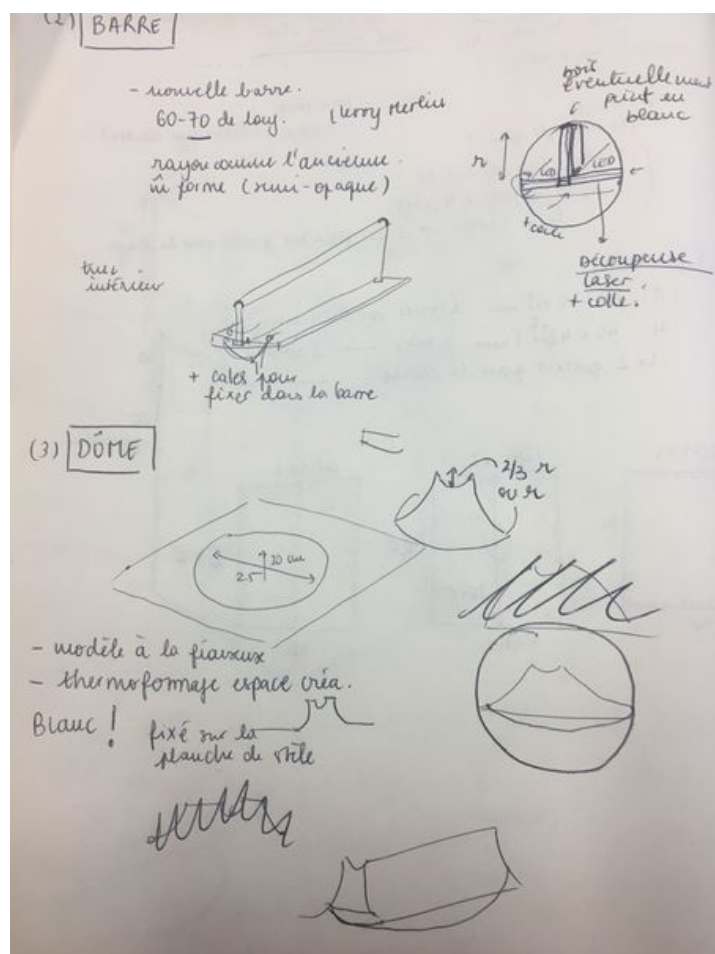 (2) BARRE
- nouvelle barre.
60-70 de long. Leroy Merlin
rayon comme l'ancienne.
m̂ forme (semi-opaque)
éventuellement
peint en
blanc
r
LED
LED
+ colle
Découpeuse
laser.
+ colle.
truc
intérieur
+ cales pour
fixer dans la barre
(3) DÔME
2/3 r
ou r
10 cm
25
- modèle à la
- thermoformage espace créa.
Blanc !
fixé sur la
planche de